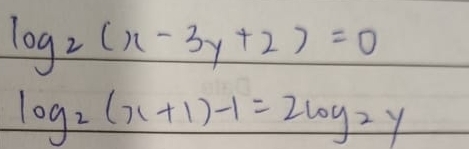 log₂ (x - 3y + 2) = 0
log₂ (x + 1) - 1 = 2log₂ y